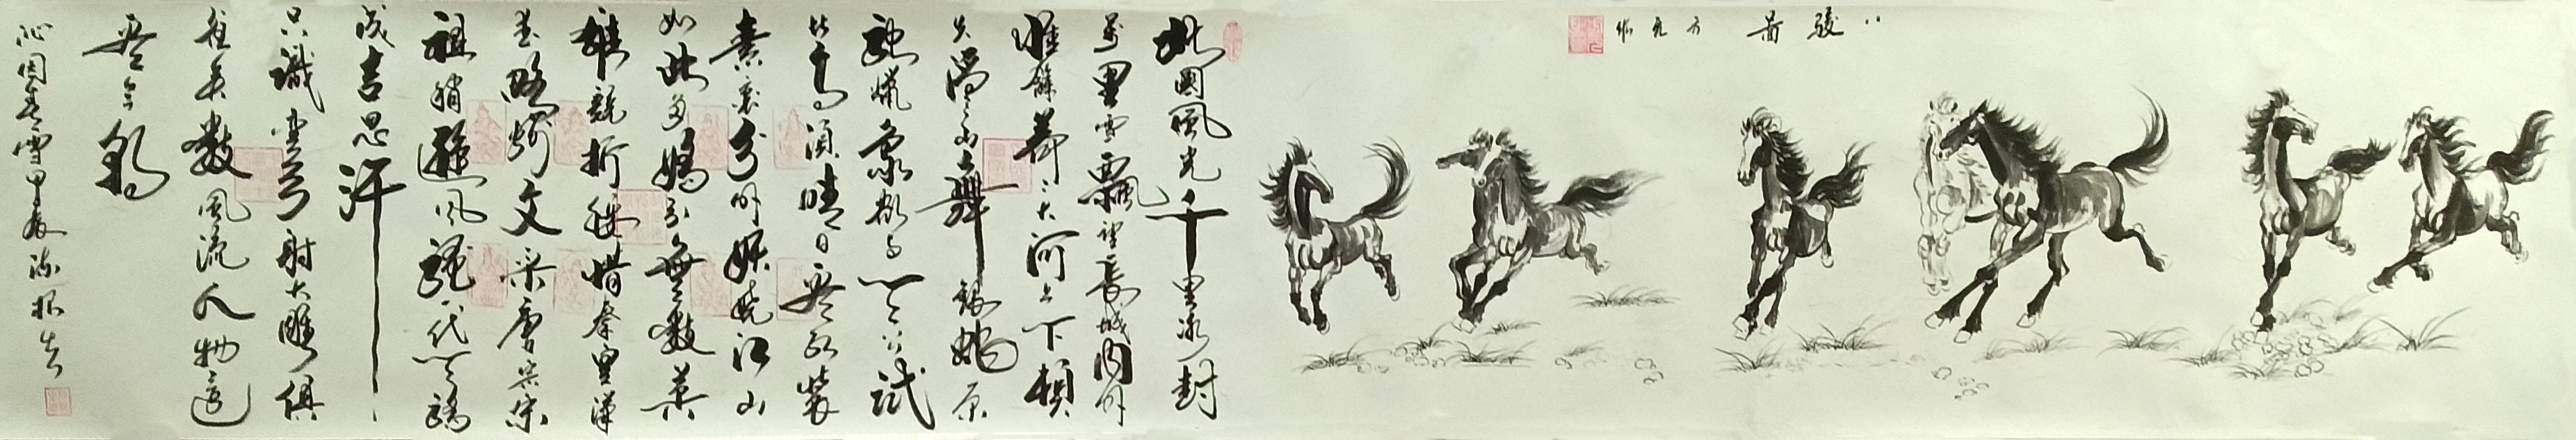 八駿啚 方元作
北國風光千里冰封
萬里雪飄望長城内外
惟餘莽〻大河上下頓
失滔〻山舞銀蛇原
馳蠟象欲与天公試
比高須晴日看红裝
素裹分外妖娆江山
如此多嬌引無數英
雄競折腰惜秦皇漢
武略輸文采唐宗宋
祖稍遜風騷一代天驕
成吉思汗
只識彎弓射大雕俱
往矣數風流人物還
看今朝
沁園春雪甲辰